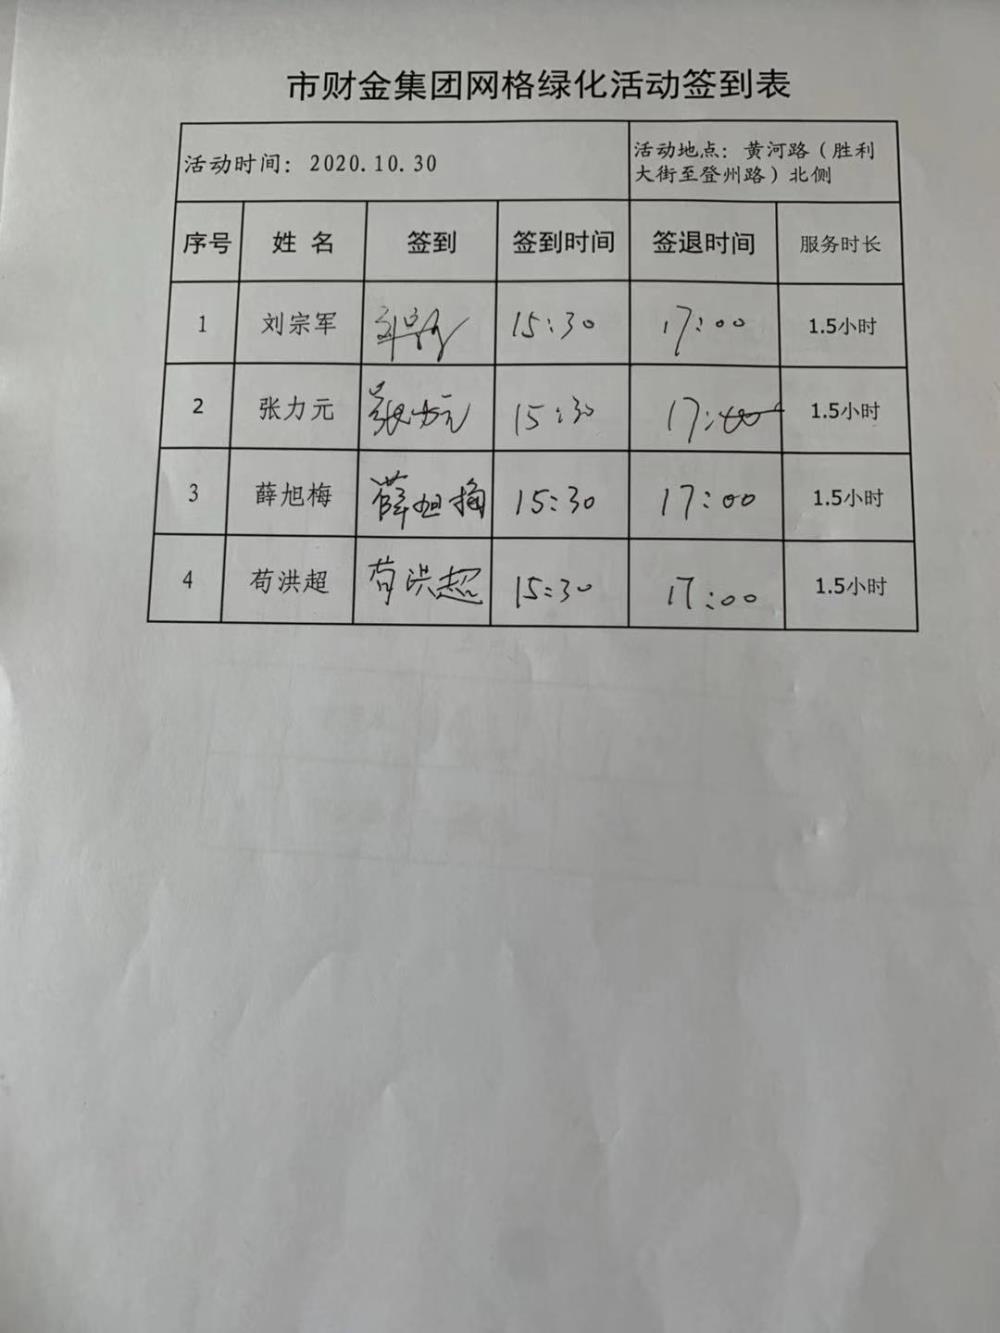 市财金集团网格绿化活动签到表
活动时间：2020.10.30
活动地点：黄河路（胜利
大街至登州路）北侧
序号 姓名 签到 签到时间 签退时间 服务时长
1 刘宗军 刘宗军 15:30 17:00 1.5小时
2 张力元 张力元 15:30 17:00 1.5小时
3 薛旭梅 薛旭梅 15:30 17:00 1.5小时
4 荀洪超 荀洪超 15:30 17:00 1.5小时